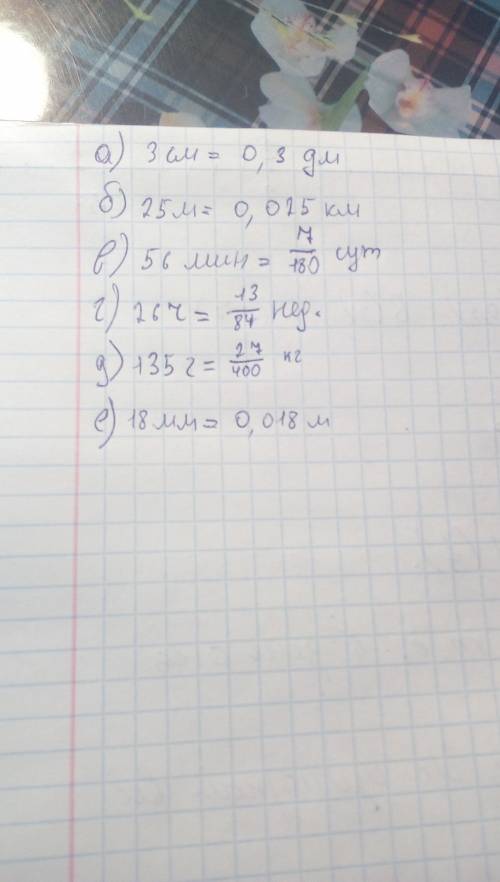 а) 3 см = 0,3 дм
б) 25 м = 0,025 км
в) 56 мин = 7/180 сут
г) 26 ч = 13/84 нед.
д) 135 г = 27/400 кг
е) 18 мм = 0,018 м